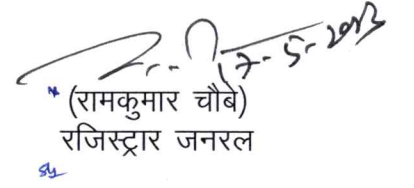 17-5-2023
(रामकुमार चौबे)
रजिस्ट्रार जनरल